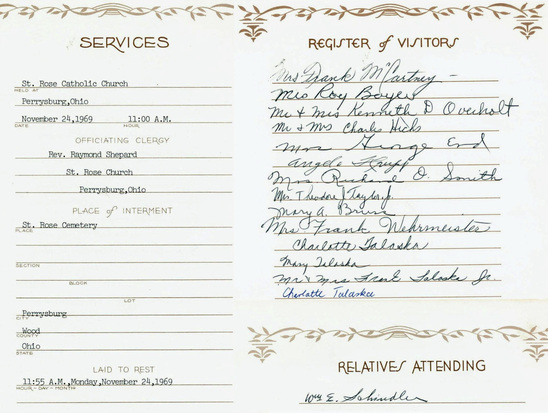 SERVICES
St. Rose Catholic Church
HELD AT
Perrysburg,Ohio
November 24,1969 11:00 A.M.
DATE HOUR
OFFICIATING CLERGY
Rev. Raymond Shepard
St. Rose Church
Perrysburg,Ohio
PLACE of INTERMENT
St. Rose Cemetery
PLACE
SECTION
BLOCK
LOT
Perrysburg
CITY
Wood
COUNTY
Ohio
STATE
LAID TO REST
11:55 A.M.,Monday,November 24,1969
HOUR - DAY - MONTH
REGISTER of VISITORS
Mrs Frank McCartney -
Mrs Roy Boyer
Mr & Mrs Kenneth D Overholt
Mr & Mrs Charles Hicks
Mrs George End
Angela
Mrs Richard O. Smith
Mrs Theodore J Taylor Jr.
Mary A.
Mrs Frank Wehrmeister
Charlotte Talaska
Mary Talaska
Mr & Mrs Frank Talaska Jr.
Charlotte Talaska
RELATIVES ATTENDING
Wm E. Schindler